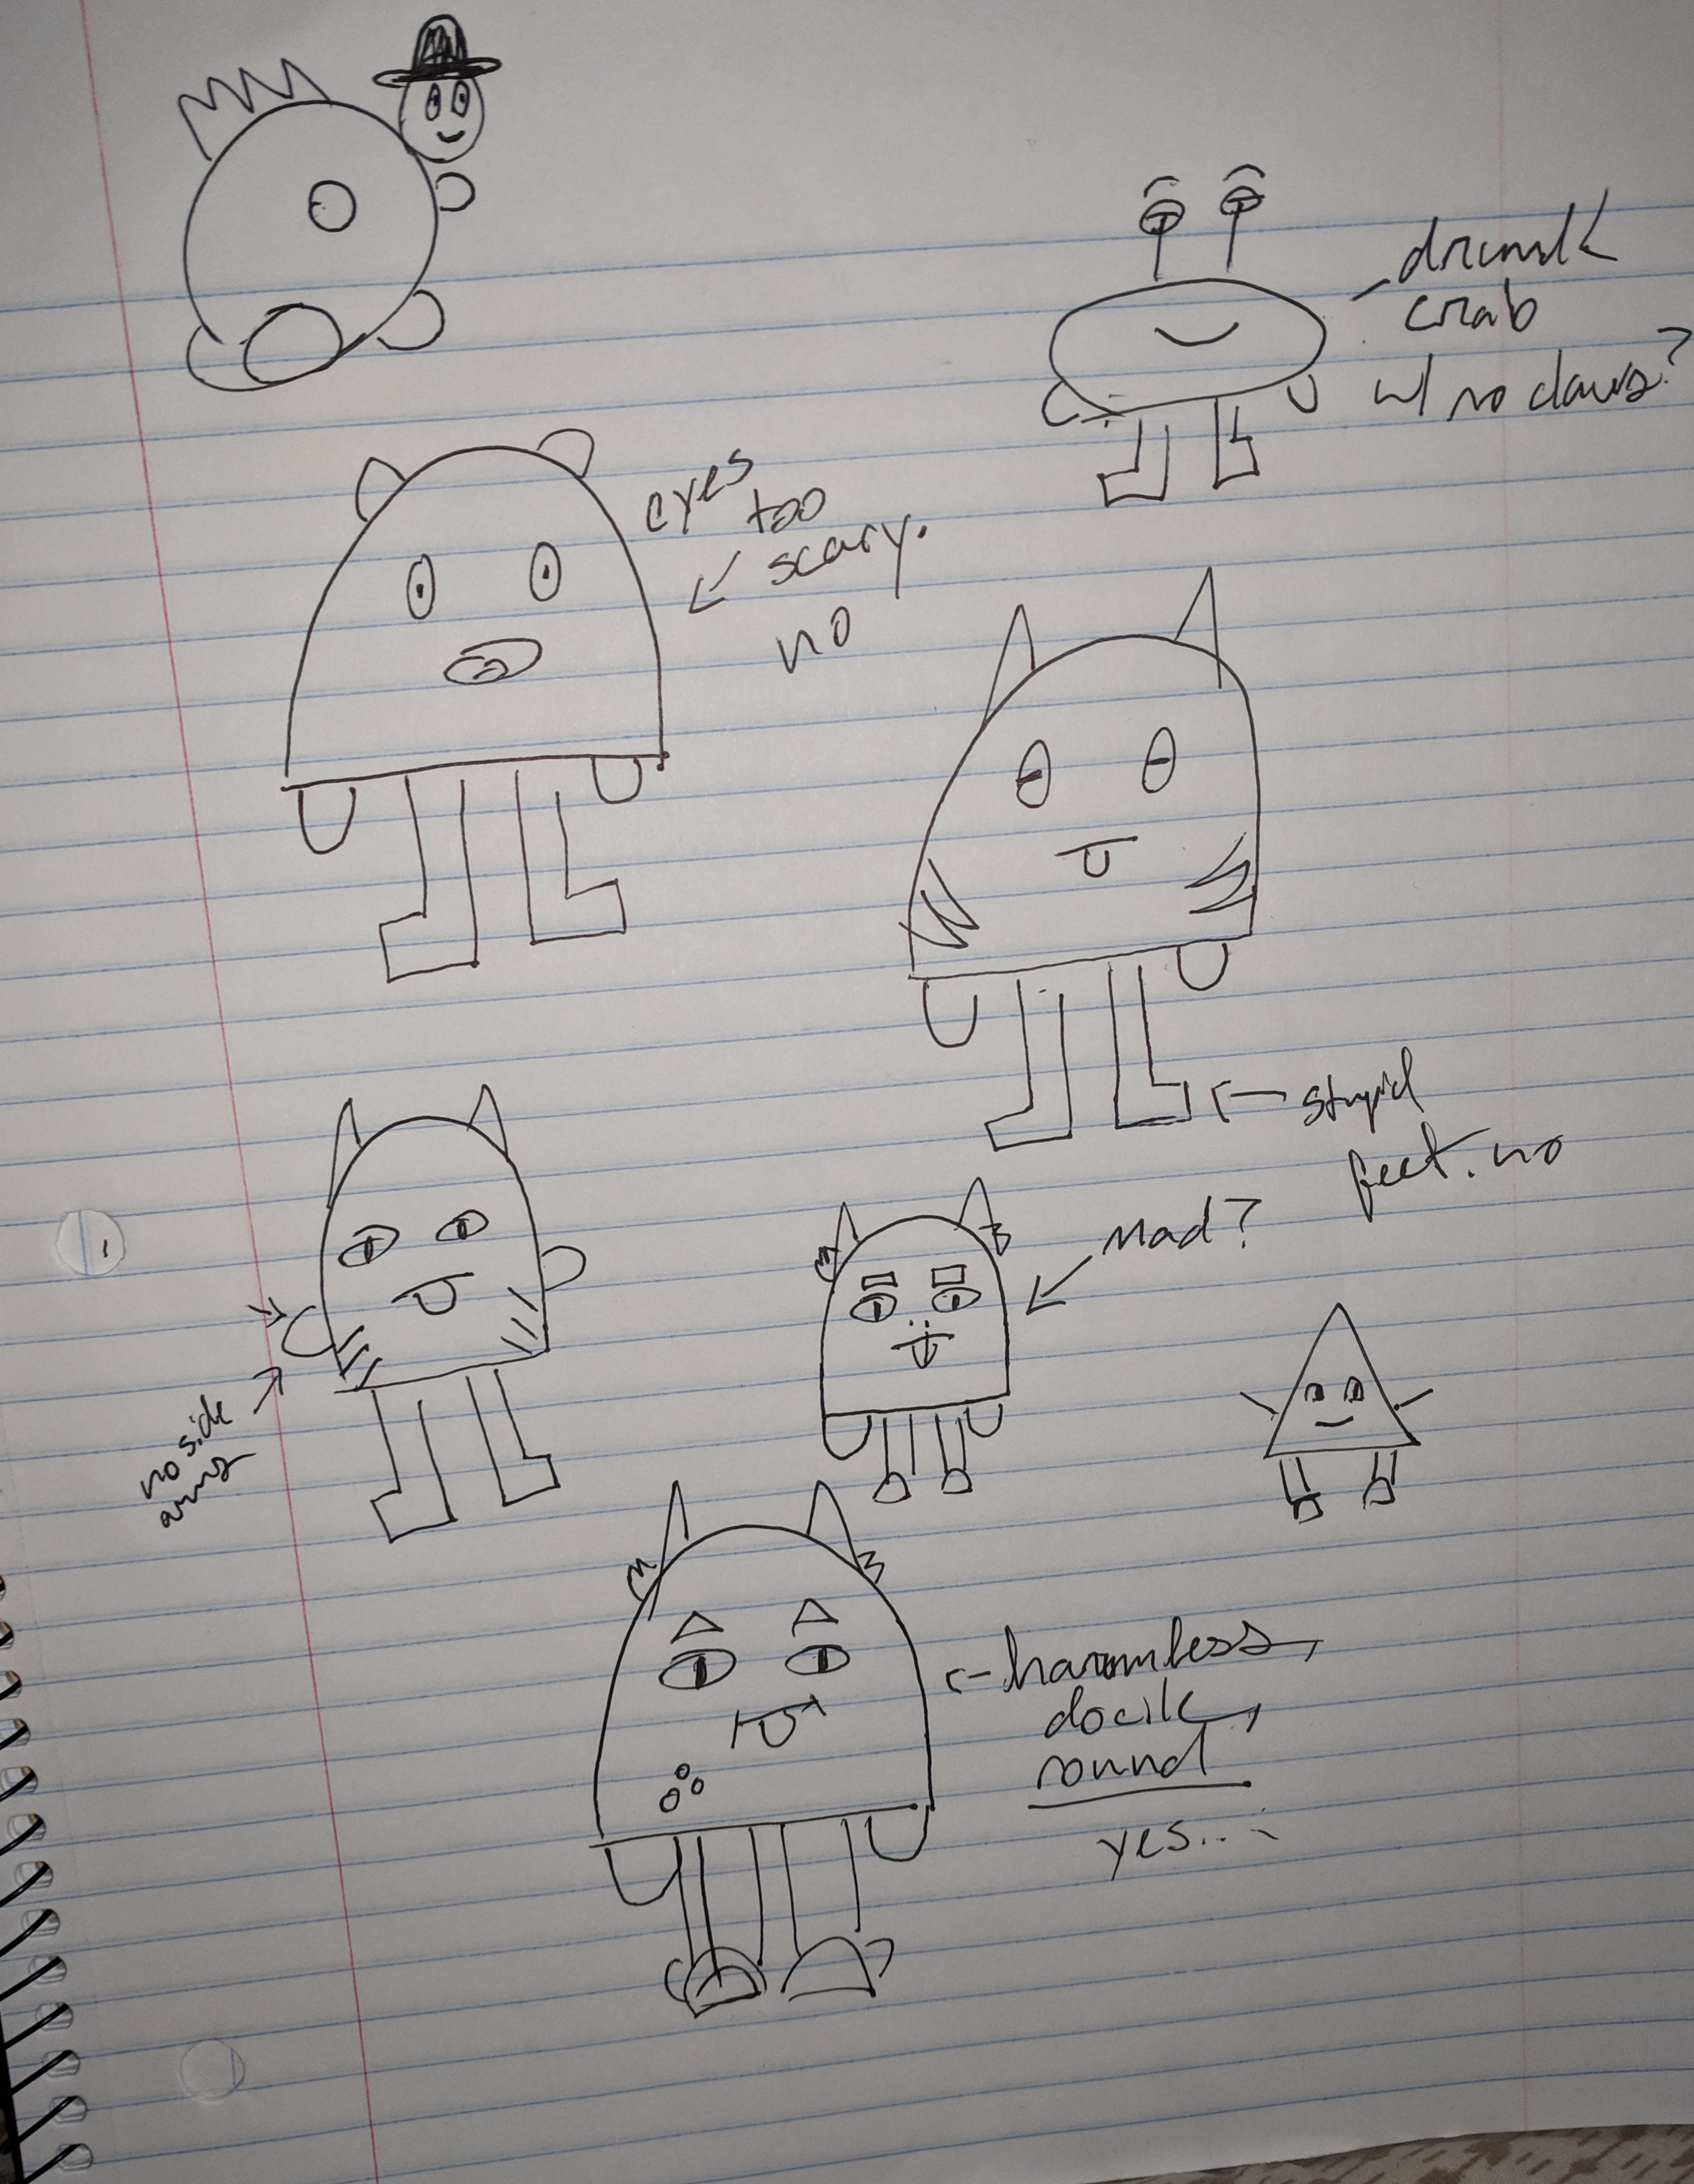 drunk
crab
w/ no claws?
eyes
too
scary.
no
stupid
feet. no
mad?
no side
arms
harmless,
docile,
round
yes...